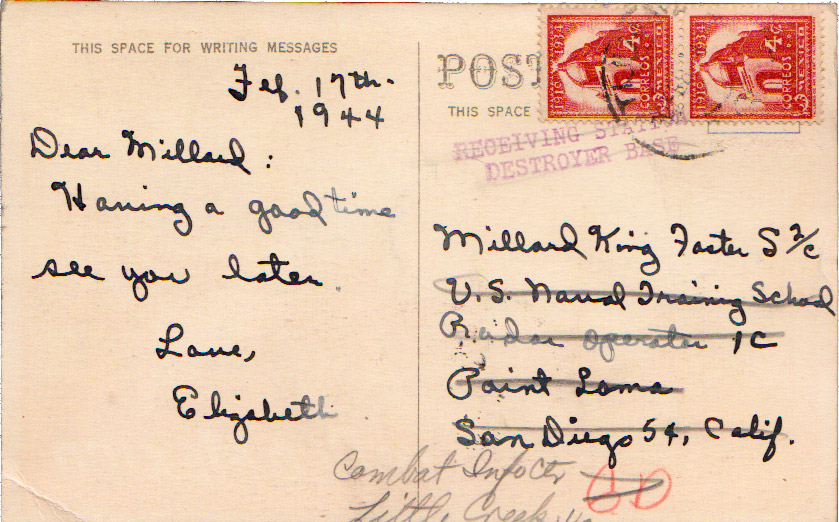 THIS SPACE FOR WRITING MESSAGES
Feb. 17th.
1944
Dear Millard:
Having a good time
see you later.
Love,
Elizabeth
POST
THIS SPACE
1910 1934
4¢
CORREOS
MEXICO
1910 1934
4¢
CORREOS
MEXICO
RECEIVING STATION
DESTROYER BASE
Millard King Foster S 2/c
U.S. Naval Training School
Radar Operator 1C
Point Loma
San Diego 54, Calif.
Combat Info Ctr
Little Creek, Va